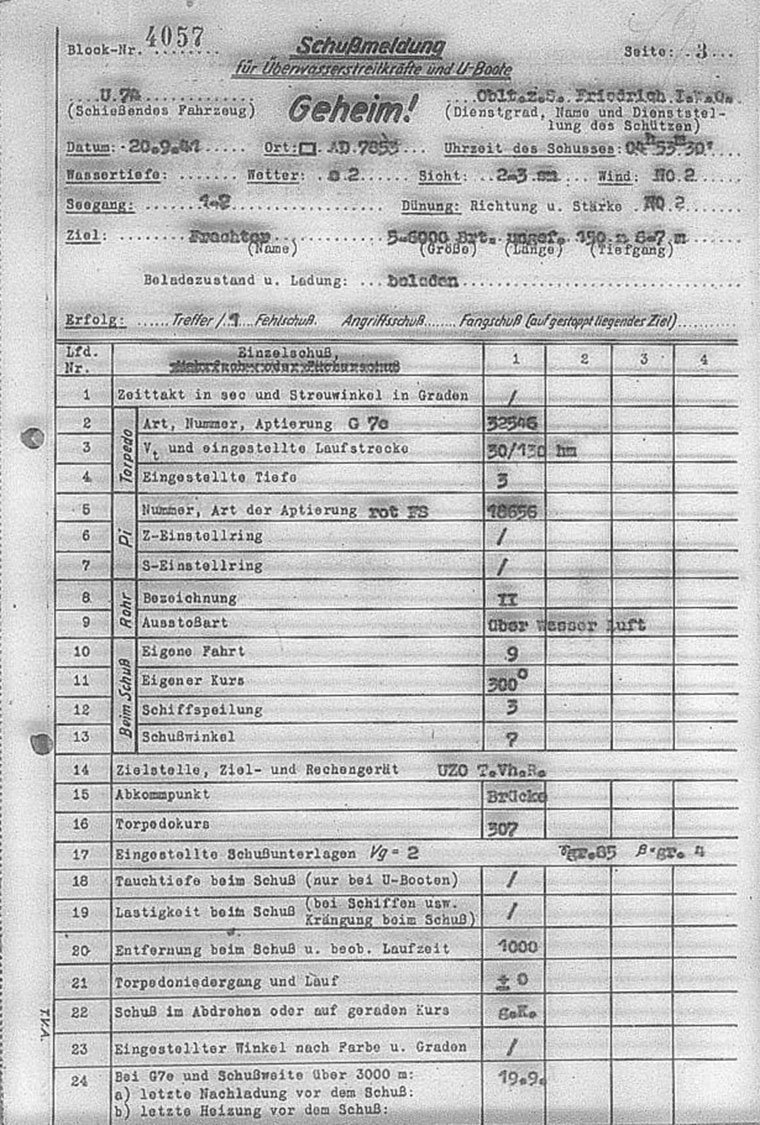 Block-Nr. 4057
Schußmeldung
Seite: 3
für Überwasserstreitkräfte und U-Boote
U.74
Geheim!
Oblt.z.S. Friedrich I.W.O.
(Schießendes Fahrzeug)
(Dienstgrad, Name und Dienststel-
lung des Schützen)
Datum: 20.9.41 Ort: AD.7853 Uhrzeit des Schusses: 04h 53m 30s
Wassertiefe: Wetter: c.2 Sicht: 2-3 sm Wind: NO.2
Seegang: 1-2 Dünung: Richtung u. Stärke NO 2
Ziel: Frachter 5-6000 Brt. ungef. 150.m 6-7 m
(Name) (Größe) (Länge) (Tiefgang)
Beladezustand u. Ladung: beladen
Erfolg: Treffer / 1 Fehlschuß. Angriffsschuß Fangschuß (auf gestoppt liegendes Ziel)
Lfd. Nr. Einzelschuß, 1 2 3 4
1 Zeittakt in sec und Streuwinkel in Graden /
Torpedo
2 Art, Nummer, Aptierung G 7e 32546
3 Vt und eingestellte Laufstrecke 30/130 hm
4 Eingestellte Tiefe 3
Pi
5 Nummer, Art der Aptierung rot FS 18656
6 Z-Einstellring /
7 S-Einstellring /
Rohr
8 Bezeichnung II
9 Ausstoßart über Wasser Luft
Beim Schuß
10 Eigene Fahrt 9
11 Eigener Kurs 300°
12 Schiffspeilung 3
13 Schußwinkel 7
14 Zielstelle, Ziel- und Rechengerät UZO T.Vh.R.
15 Abkommpunkt Brücke
16 Torpedokurs 307
17 Eingestellte Schußunterlagen Vg = 2 γgr.85 β·gr. 4
18 Tauchtiefe beim Schuß (nur bei U-Booten) /
19 Lastigkeit beim Schuß (bei Schiffen usw. Krängung beim Schuß) /
20 Entfernung beim Schuß u. beob. Laufzeit 1000
21 Torpedoniedergang und Lauf ± 0
22 Schuß im Abdrehen oder auf geraden Kurs g.K.
23 Eingestellter Winkel nach Farbe u. Graden /
24 Bei G7e und Schußweite über 3000 m: 19.9.
a) letzte Nachladung vor dem Schuß:
b) letzte Heizung vor dem Schuß: